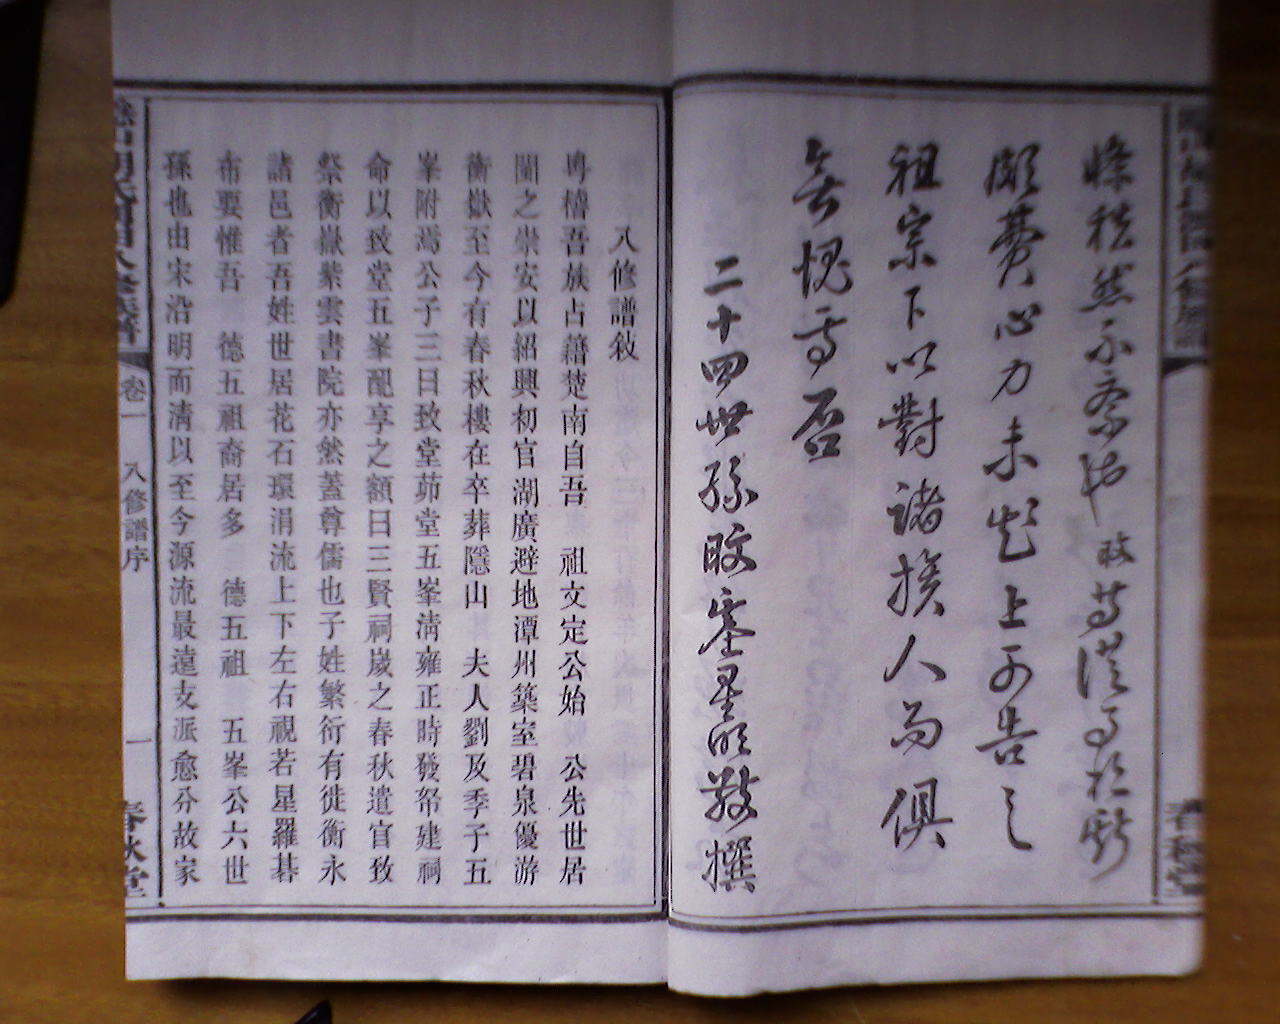 條秩然不紊也
頗費心力未知上可告之
祖宗下以對諸族人而俱
無愧焉否
二十四世孫
敬撰
八修譜敍
粤稽吾族占籍楚南自吾 祖文定公始 公先世居
閩之崇安以紹興初官湖廣避地潭州築室碧泉優游
衡嶽至今有春秋樓在卒葬隱山 夫人劉及季子五
峯附焉公子三曰致堂茆堂五峯清雍正時發帑建祠
命以致堂五峯配享之額曰三賢祠嵗之春秋遣官致
祭衡嶽紫雲書院亦然蓋尊儒也子姓繁衍有徙衡永
諸邑者吾姓世居花石環涓流上下左右視若星羅棊
布要惟吾 德五祖裔居多 德五祖 五峯公六世
孫也由宋沿明而清以至今源流最遠支派愈分故家
卷一 八修譜序 一 春秋堂